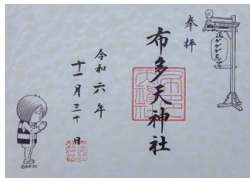 奉拝
布多天神社
令和六年
十一月三十日